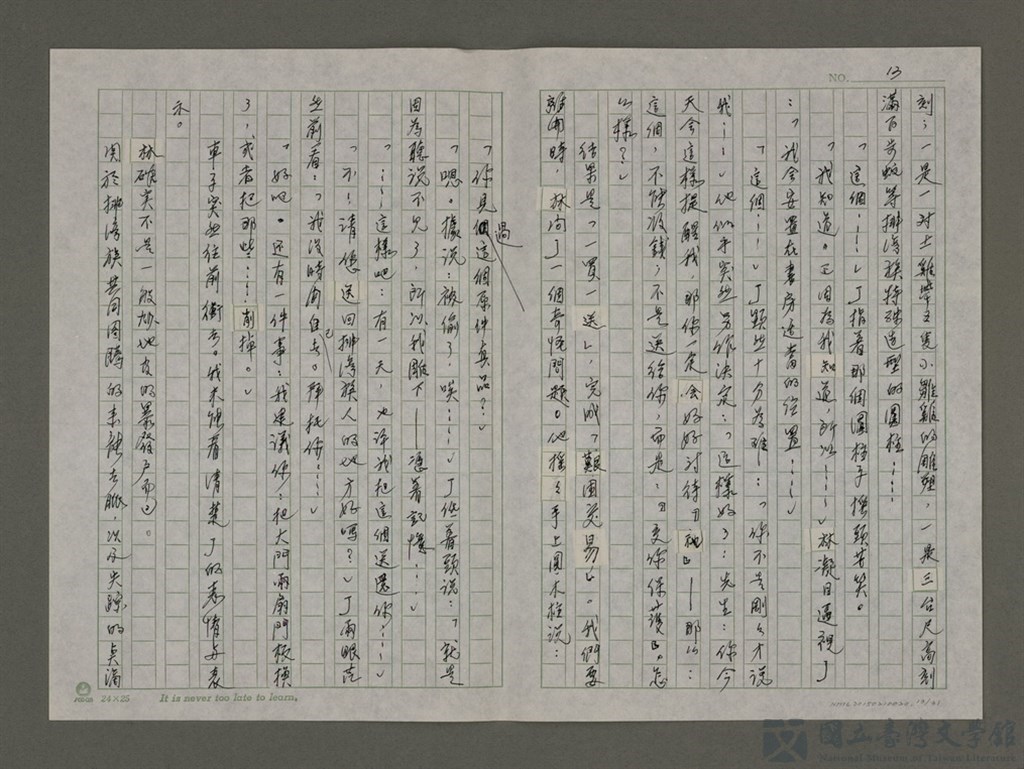 NO. 13
刻；一是一對土雞華玉寬小雛雞的雕塑，一是三台尺高刻
滿百步蛇等排灣族特殊造型的圓柱……
「這個……」J指著那個圓柱子搔頭苦笑。
「我知道。正因為我知道，所以……」林凝目逼視J
：「我會安置在書房適當的位置……」
「這個……」J顯然十分為難：「你不是剛剛才說
我……」他似乎突然另作決定：「這樣好了：先生：你今
天會這樣提醒我，那你一定會好好對待『祂』——那么：
這個，不能收錢，不是送給你，而是：『交你保護』。怎
么樣？」
結果是「一買一送」，完成「艱困交易」。我們要
離開時，林問了一個奇怪問題。他搖搖手上圓木柱說：
「你見過這個原件真品？」
「嗯。據說：被偷了，唉……」J低著頭說：「就是
因為聽說不見了，所以我雕下——憑著記憶……
「……這樣吧：有一天，也許我把這個送還你……」
「不！請您送回排灣族人的地方好嗎？」J兩眼茫
然前看：「我沒時間自己去。拜托你……」
「好吧。還有一件事：我建議你：把大門兩扇門板換
了，或者把那些……削掉。」
車子突然往前衝去。我未能看清楚J的表情與表
示。
林碩英不是一般炒地皮的暴發戶而已。
關於排灣族共同圖騰的來龍去脈，以及失蹤的點滴
24×25 It is never too late to learn.
國立臺灣文學館
National Museum of Taiwan Literature